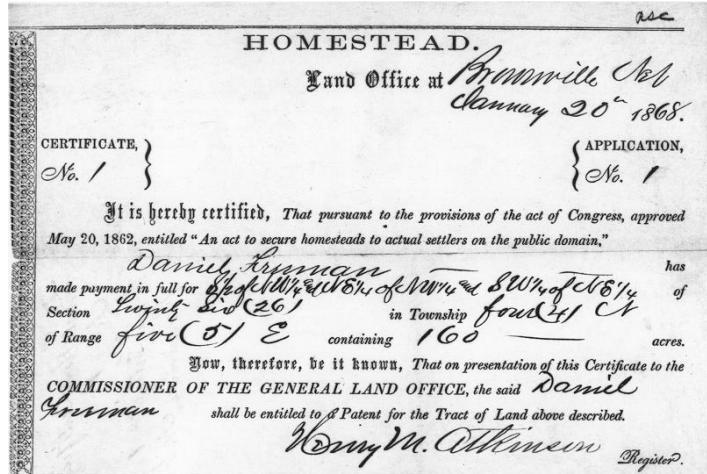 asc
HOMESTEAD.
Land Office at Brownville Neb
January 20th 1868.
CERTIFICATE, No. 1 } { APPLICATION, No. 1
It is hereby certified, That pursuant to the provisions of the act of Congress, approved
May 20, 1862, entitled “An act to secure homesteads to actual settlers on the public domain,”
Daniel Freeman has
made payment in full for of NW¼ & NE¼ of NW¼ and SW¼ of NE¼ of
Section Twenty Six (26) in Township four (4) N
of Range five (5) E containing 160 acres.
Now, therefore, be it known, That on presentation of this Certificate to the
COMMISSIONER OF THE GENERAL LAND OFFICE, the said Daniel
Freeman shall be entitled to a Patent for the Tract of Land above described.
Henry M. Atkinson
Register.